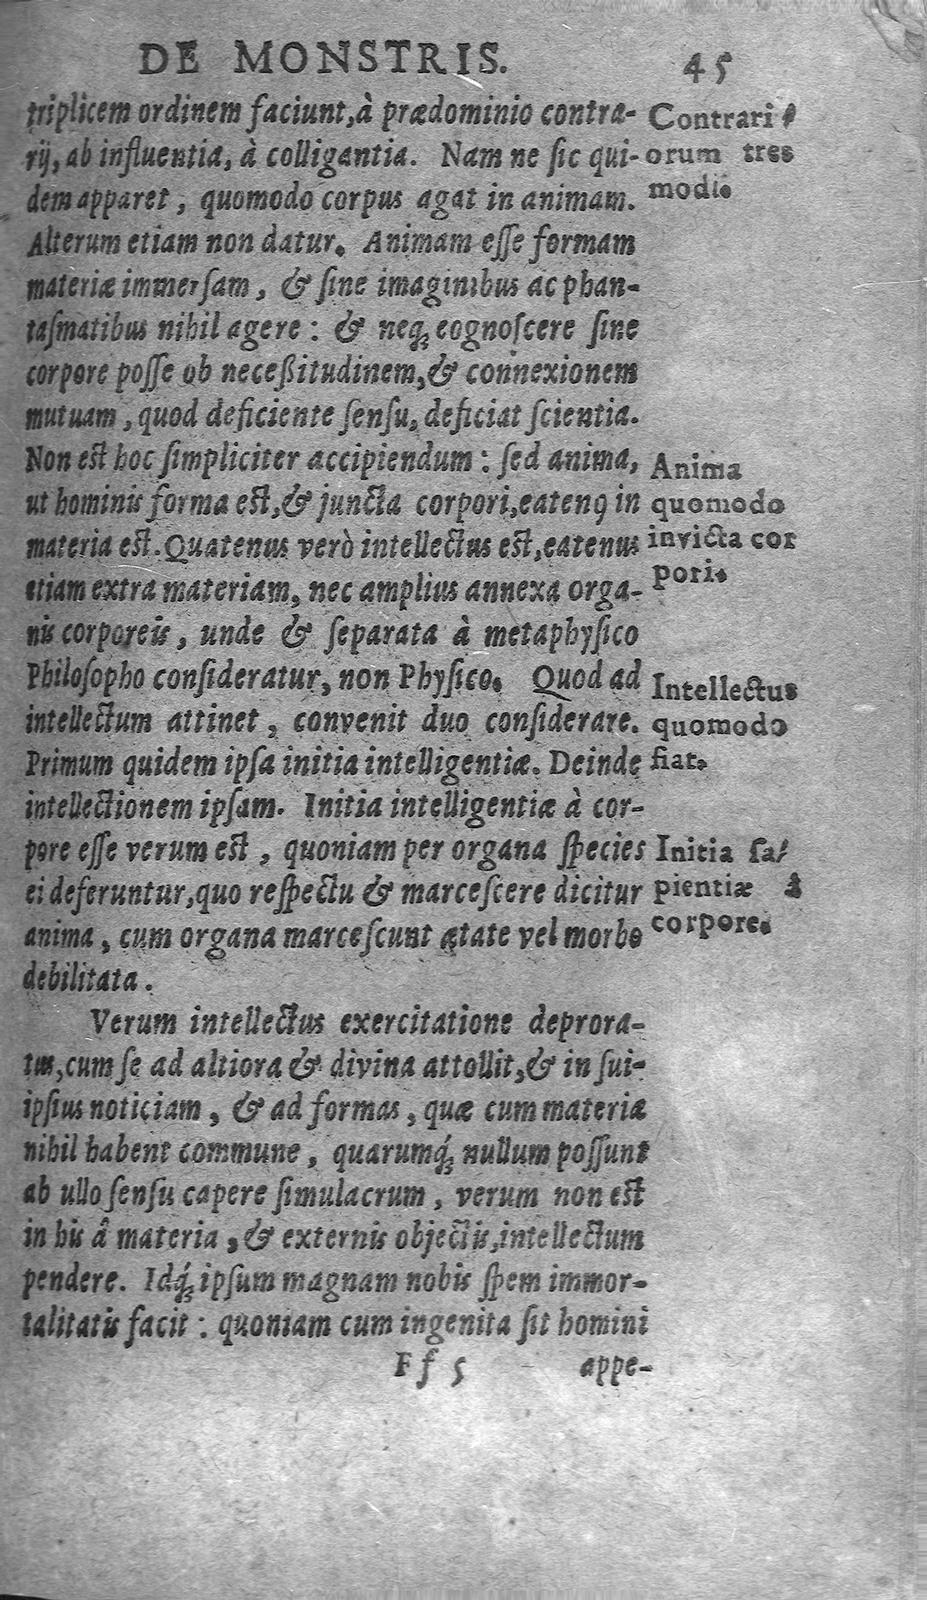 DE MONSTRIS. 45
triplicem ordinem faciunt, à prædominio contra-
rij, ab influentia, à colligantia. Nam ne sic qui-
dem apparet, quomodo corpus agat in animam.
Alterum etiam non datur. Animam esse formam
materiæ immersam, & sine imaginibus ac phan-
tasmatibus nihil agere : & neq; eognoscere sine
corpore posse ob necessitudinem, & connexionem
mutuam, quod deficiente sensu, deficiat scientia.
Non est hoc simpliciter accipiendum : sed anima,
ut hominis forma est, & juncta corpori, eatenq in
materia est. Quatenus verò intellectus est, eatenus
etiam extra materiam, nec amplius annexa orga-
nis corporeis, unde & separata à metaphysico
Philosopho consideratur, non Physico. Quod ad
intellectum attinet, convenit duo considerare.
Primum quidem ipsa initia intelligentiæ. Deinde
intellectionem ipsam. Initia intelligentiæ à cor-
pore esse verum est, quoniam per organa species
ei deferuntur, quo respectu & marcescere dicitur
anima, cum organa marcescunt ætate vel morbo
debilitata.
Verum intellectus exercitatione deprora-
tus, cum se ad altiora & divina attollit, & in sui-
ipsius noticiam, & ad formas, quæ cum materia
nihil habent commune, quarumq́; nullum possunt
ab ullo sensu capere simulacrum, verum non est
in his â materia, & externis objectis, intellectum
pendere. Idq́; ipsum magnam nobis spem immor-
talitatis facit : quoniam cum ingenita sit homini
Ff 5 appe-
Contrari
orum tres
modi.
Anima
quomodo
invicta cor
pori.
Intellectus
quomodo
fiat.
Initia sa/
pientiæ à
corpore.